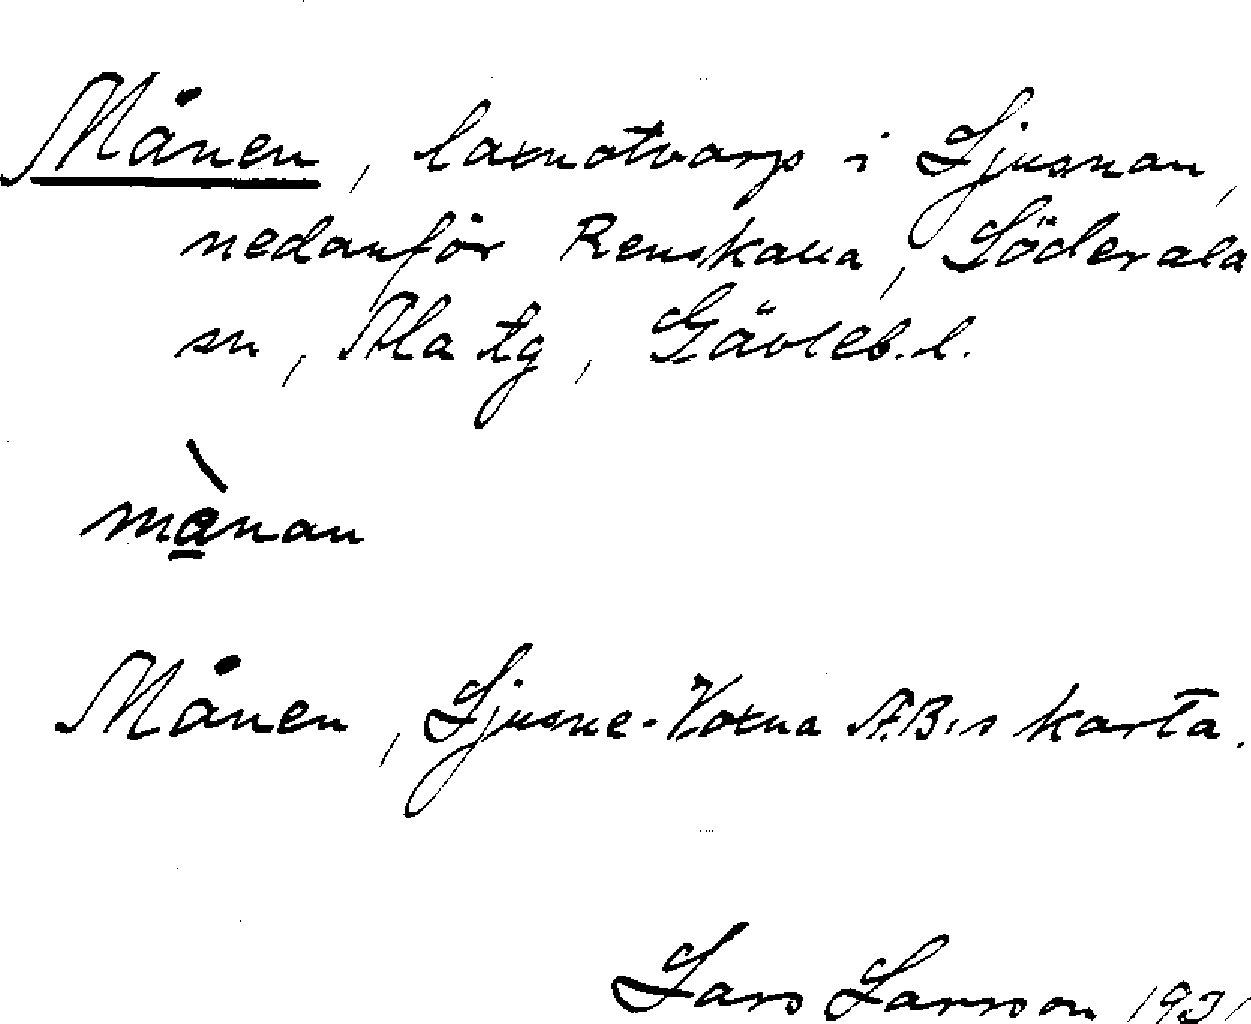 Månen, laxnotvarp i Ljusnan,
nedanför Renskalla, Söderala
sn, Ala tg, Gävleb.l.
mànan
Månen, Ljusne-Voxna AB:s karta.
Lars Larsson 1931